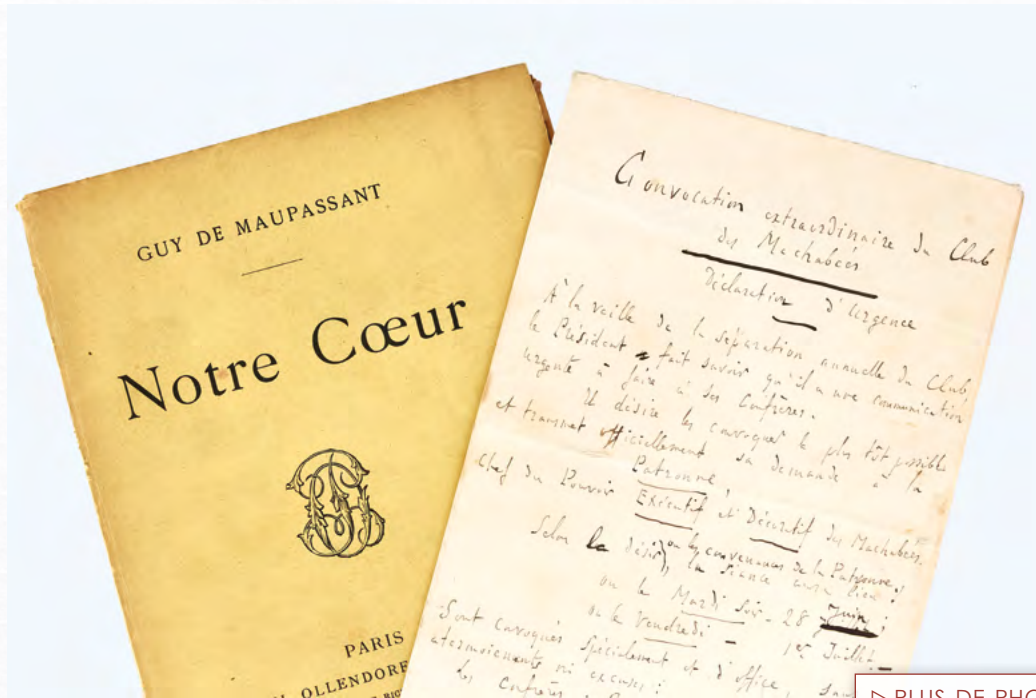 GUY DE MAUPASSANT
Notre Cœur
PARIS
OLLENDORF
Convocation extraordinaire du Club
des Machabées
Déclaration d'Urgence
À la veille de la séparation annuelle du Club
le Président fait savoir qu'il a une communication
urgente à faire à ses Confrères.
Il désire les convoquer le plus tôt possible
et transmet officiellement sa demande à la
Patronne
Chef du Pouvoir Exécutif et Décoratif des Machabées.
Selon le désir ou les convenances de la Patronne,
la Séance aura lieu :
ou le Mardi Soir - 28 Juin ;
ou le Vendredi - 1er Juillet
Sont convoqués spécialement et d'office, sans
atermoiements ni excuses :
les Confrères :
▷ PLUS DE PHO